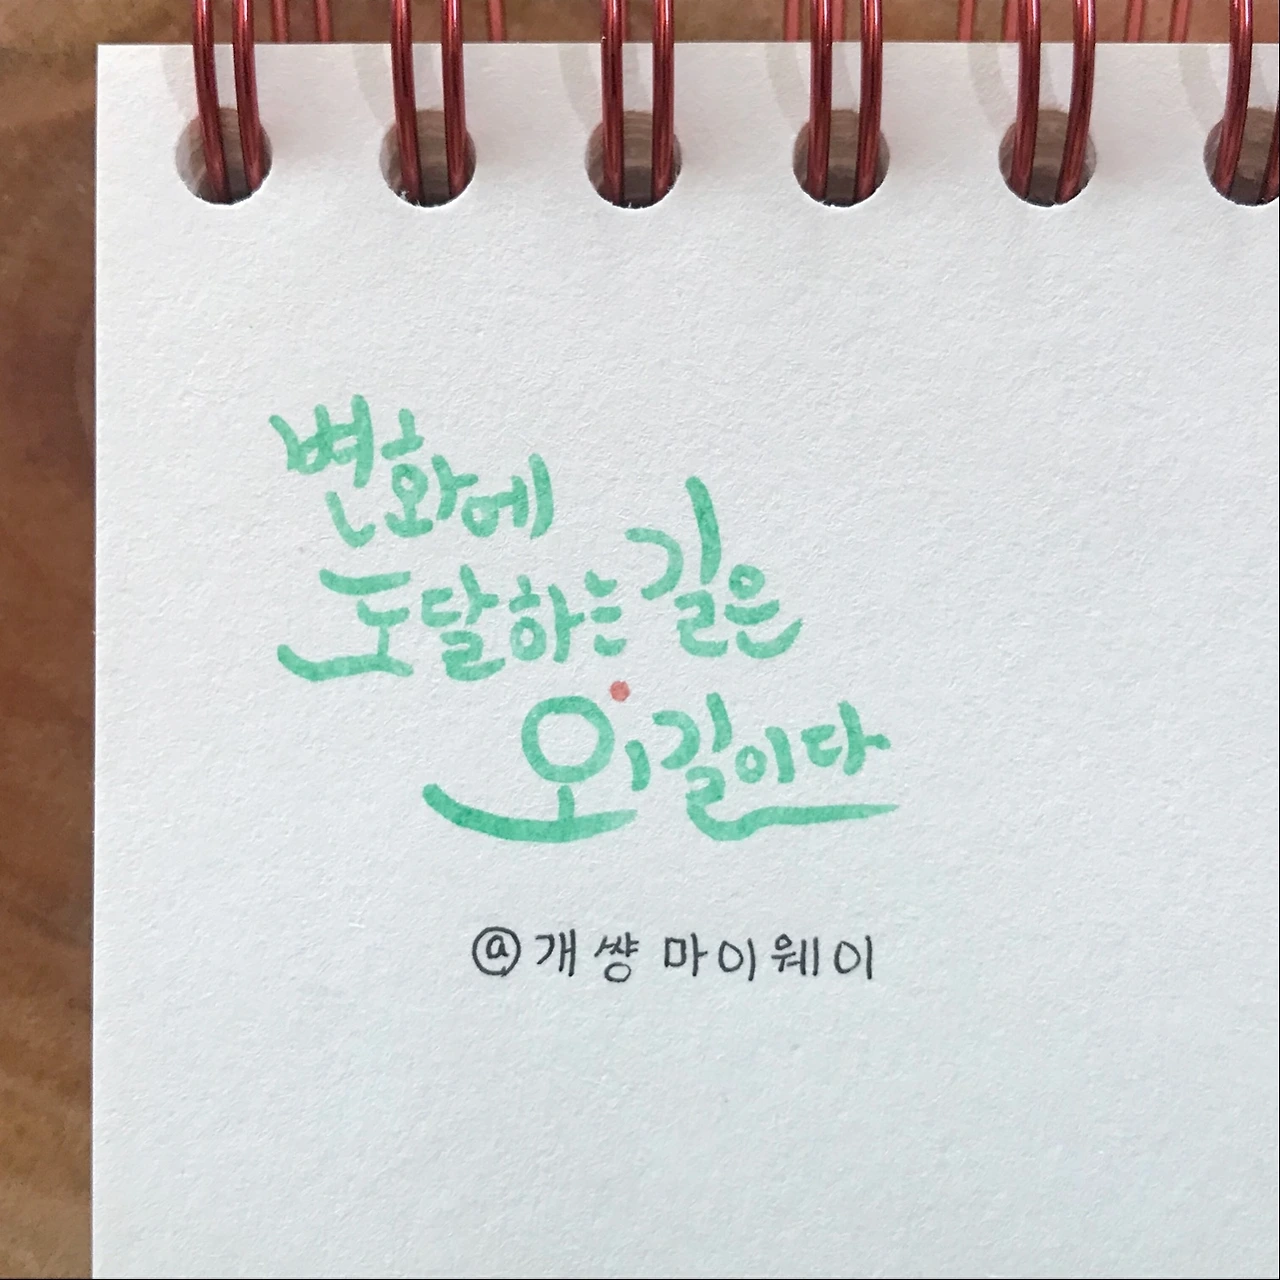 변화에
도달하는 길은
외길이다
@개썅마이웨이